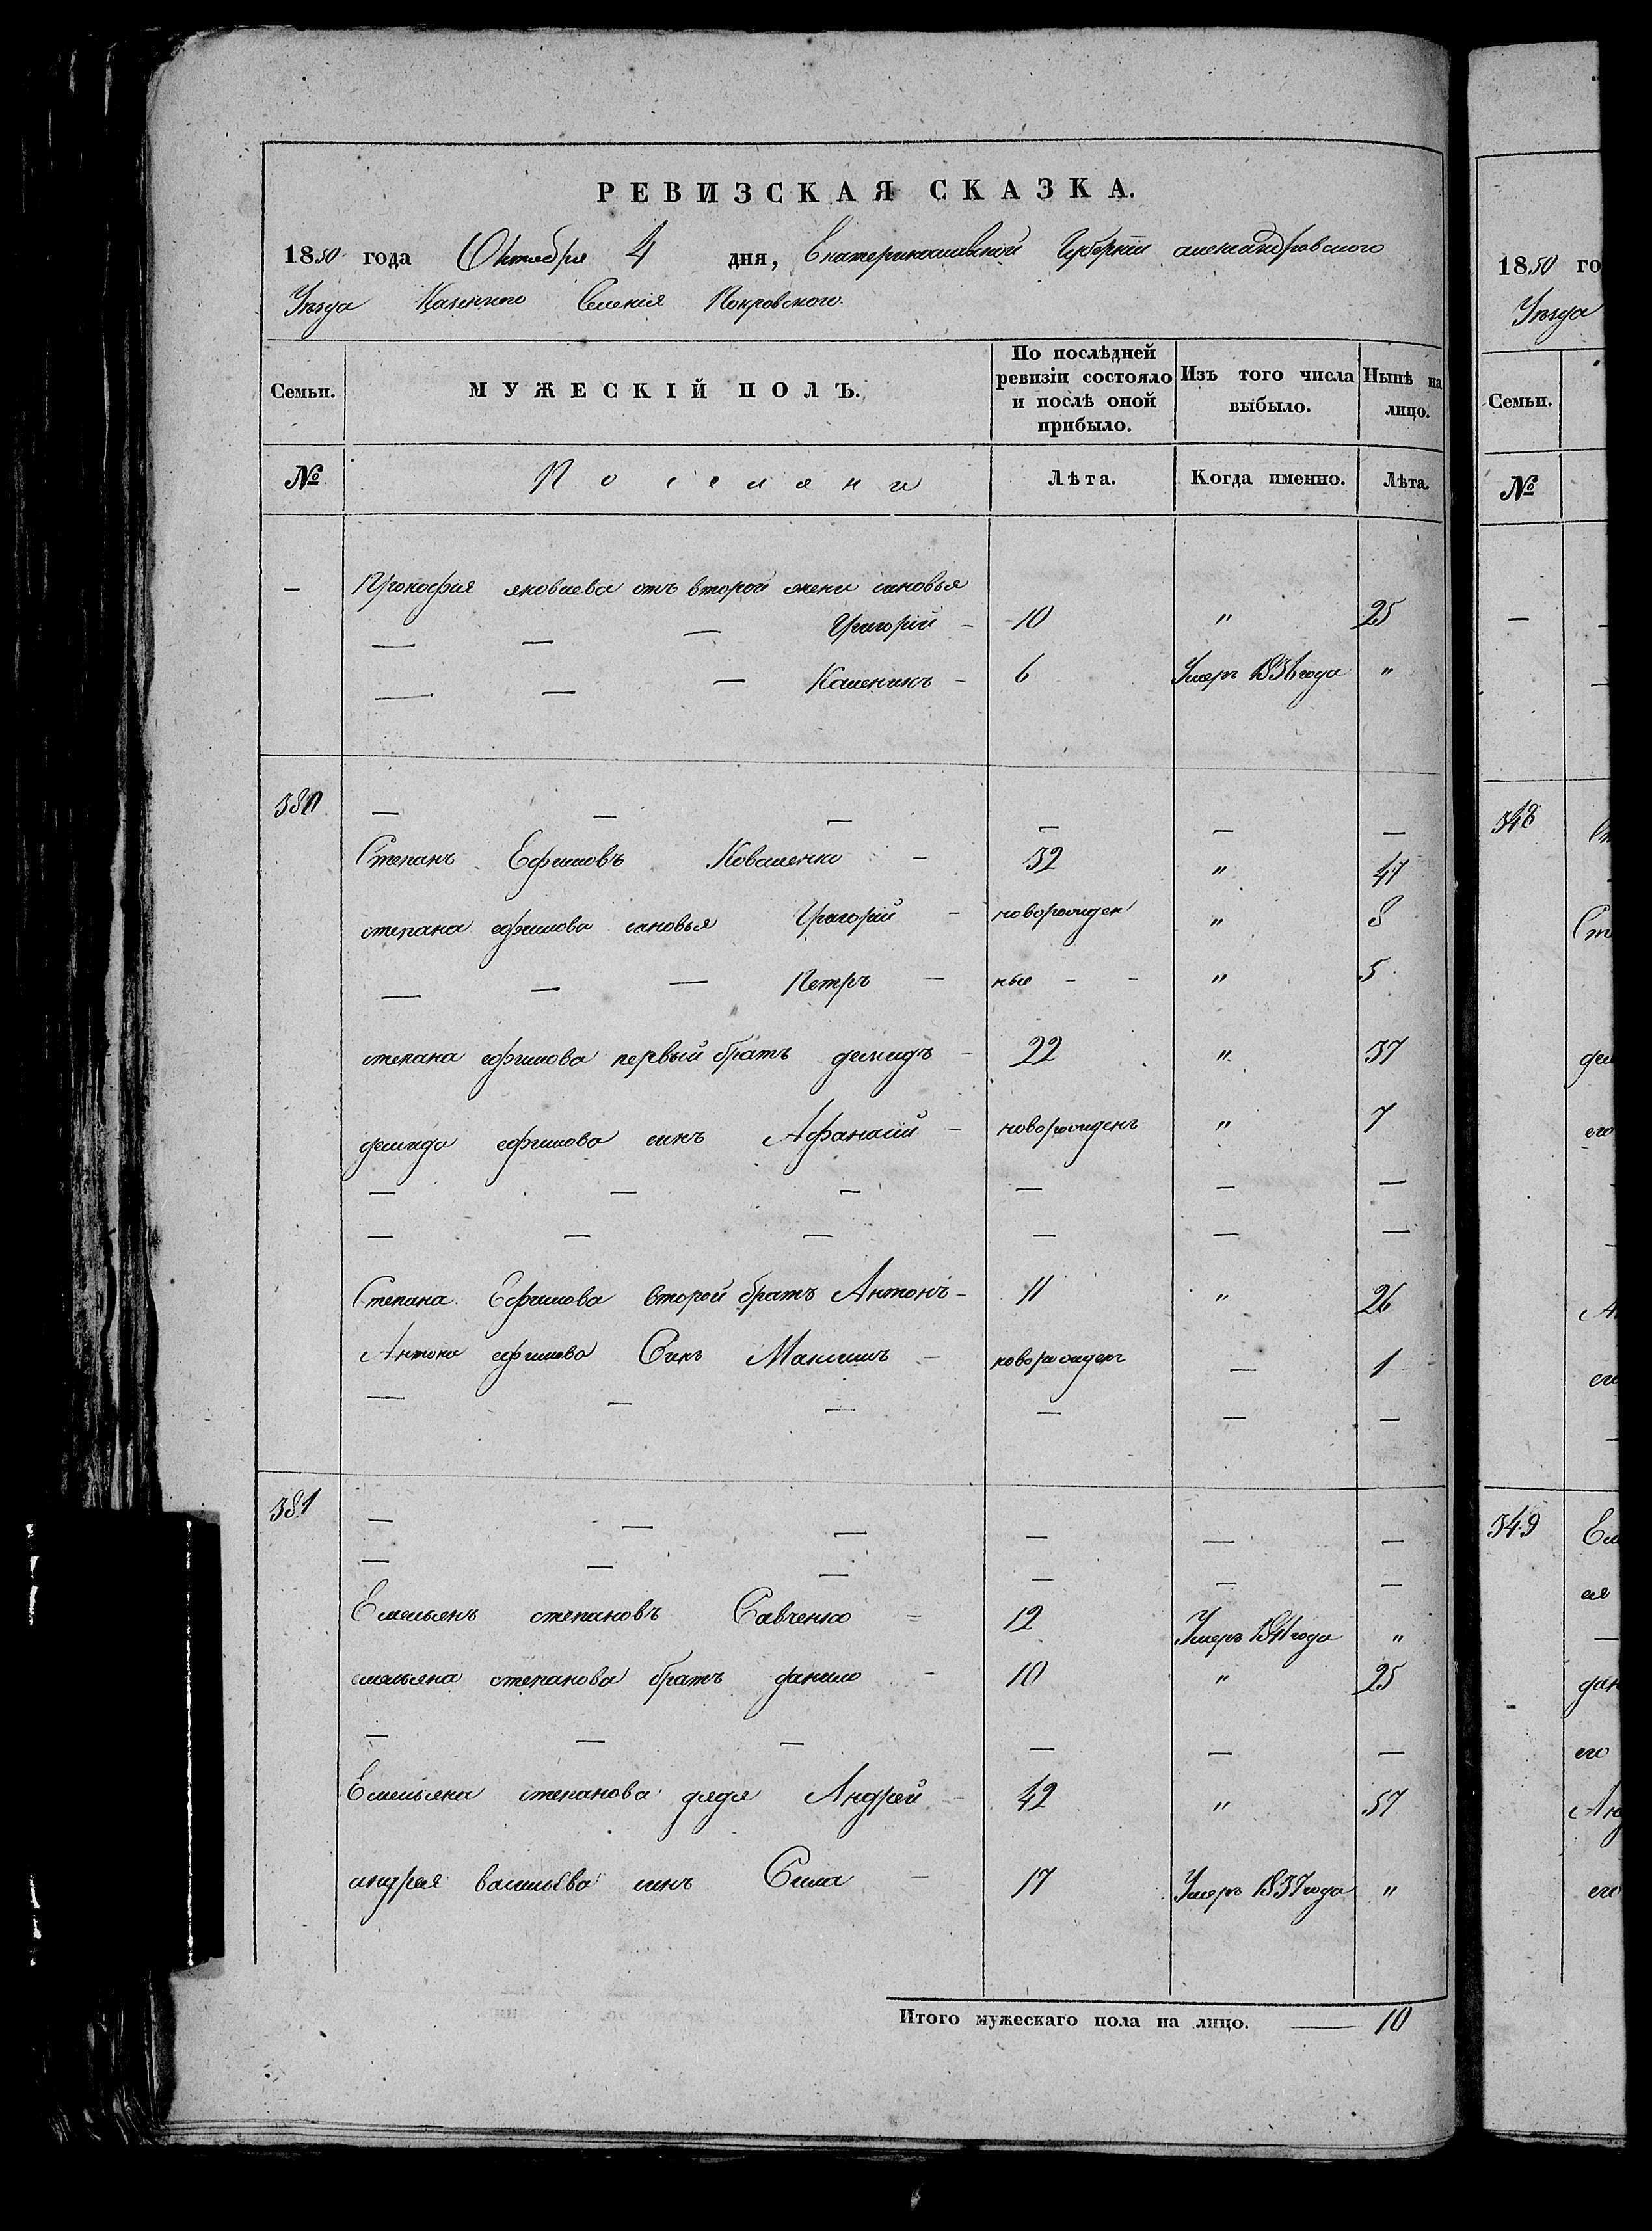 РЕВИЗСКАЯ СКАЗКА.
1850 года Октября 4 дня, Екатеринославской Губерніи александровского
Уѣзда Казенного Селенія Покровского.
Семьи. МУЖЕСКІЙ ПОЛЪ. По послѣдней ревизіи состояло и послѣ оной прибыло. Изъ того числа выбыло. Нынѣ на лицо.
№ Поселяни Лѣта. Когда именно. Лѣта.
— Прокофія яковлева отъ второй жени синовья
— — — Григорій - 10 " 25
— — — Каленикъ - 6 Умеръ 1836 года "
380 — — — — — —
Степанъ Ефимовъ Коваленко - 32 " 47
степана ефимова синовья Григорій - новорожден " 8
— — — Петръ - ные - - " 5
степана ефимова первый братъ демидъ - 22 " 37
демида ефимова синъ Афанасій - новорожденъ " 7
— — — — — —
— — — — — —
Степана Ефимова второй братъ Антонъ - 11 " 26
Антона ефимова Синъ Максимъ - новорожденъ — 1
— — — — — —
381 — — — — — —
— — — — — —
Емельянъ степановъ Савченко - 12 Умеръ 1841 года "
емельяна степанова братъ данило - 10 " 25
— — — — — —
Емельяна степанова дядя Андрей - 42 " 57
андрея васильева синъ Сила - 17 Умеръ 1837 года "
Итого мужескаго пола на лицо. — 10
1850 го
Уѣзда
Семьи.
№
—
348
Ст
дем
его
349
Ем
ея
—
дан
его
Анд
его